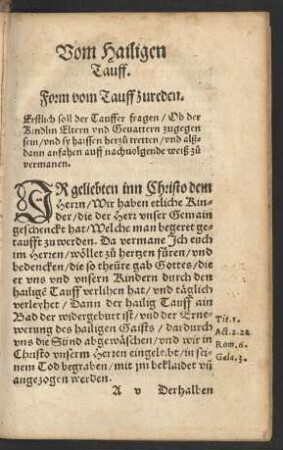 Vom Hailigen
Tauff.
Form vom Tauff zureden.
Erstlich soll der Tauffer fragen / Ob der
Kindlin Eltern vnd Geuattern zugegen
sein / vnd sy haissen herzů tretten / vnd alß-
dann anfahen auff nachuolgende weiß zů
vermanen.
IR geliebten inn Christo dem
Herrn / Wir haben etliche Kin-
der / die der Herr vnser Gemain
geschenckt hat / Welche man begeret ge-
taufft zu werden. Da vermane Ich euch
im Herren / wöllet zů hertzen füren / vnd
bedencken / die so theüre gab Gottes / die
er vns vnd vnsern Kindern durch den
hailigẽ Tauff verlihen hat / vnd täglich
verleyhet / Dann der hailig Tauff ain
Bad der widergeburt ist / vnd der Erne-
werung des hailigen Gaists / dardurch
vns die Sünd abgewäschen / vnd wir in
Christo vnserm Herren eingeleibt / in sei-
nem Tod begraben / mit jm beklaidet vñ
angezogen werden.
Tit. 1.
Act. 2. 22.
Rom. 6.
Gala. 3.
A v Derhalben